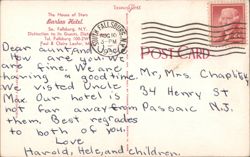 The House of Stars
Barlou Hotel
So. Fallsburg, N.Y.
Distinction to Its Guests, Distin
Tel. Fallsburg 100-298
Paul & Claire Lasser
SOUTH FALLSBURG
AUG 10
PM
N.Y.
POSTCARD
Dear aunt and
How are you. We
are fine. We are
having a good time.
We visited Uncle
Max. Our hotel is
not far away from
them. Best regards
to both of you.
Love
Harold, Hele, and children.
Mr. Mrs. Chaplitzky
34 Henry St
Passaic N.J.